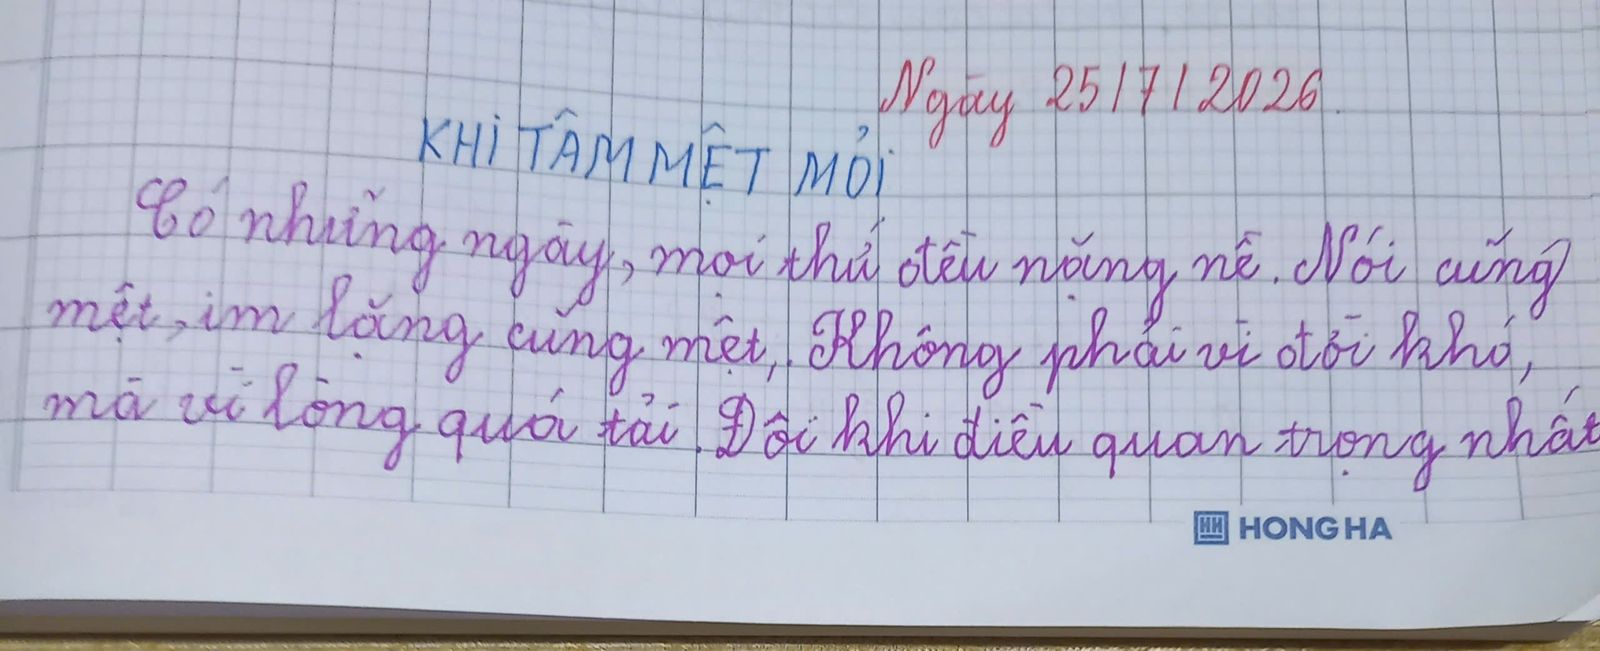 Ngày 25/7/2026.
KHI TÂM MỆT MỎI
Có những ngày, mọi thứ đều nặng nề. Nói cũng
mệt, im lặng cũng mệt,. Không phải vì đời khó,
mà vì lòng quá tải. Đôi khi điều quan trọng nhất
HONG HA